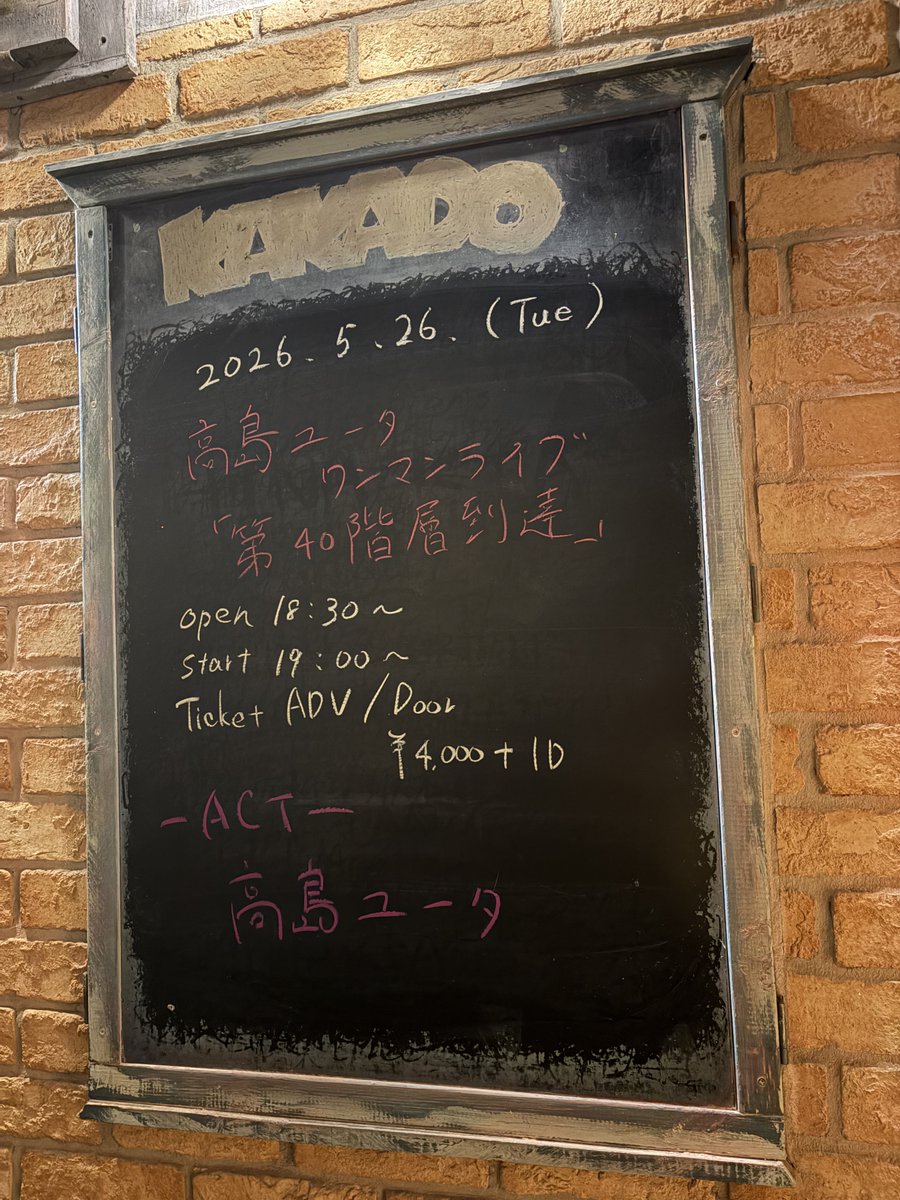 KAKADO
2026.5.26.(Tue)
高島ユータ
ワンマンライブ
「第40階層到達」
open 18:30～
start 19:00～
Ticket ADV/Door
¥4,000+1D
-ACT-
高島ユータ